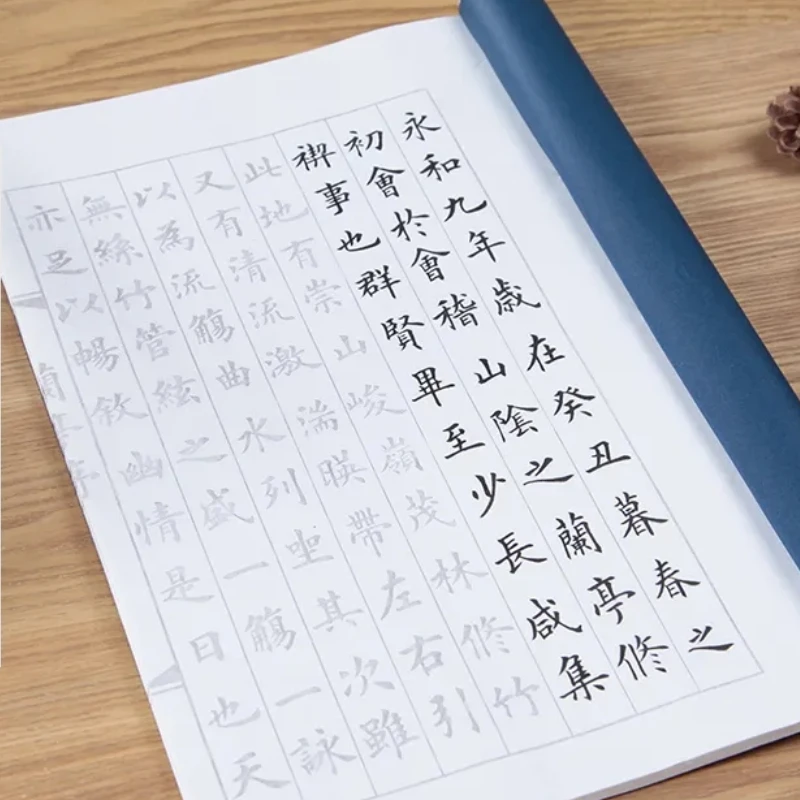 永和九年歲在癸丑暮春之
初會於會稽山陰之蘭亭修
禊事也群賢畢至少長咸集
此地有崇山峻嶺茂林修竹
又有清流激湍暎帶左右引
以為流觴曲水列坐其次雖
無絲竹管絃之盛一觴一詠
亦足以暢敘幽情是日也天
蘭亭序